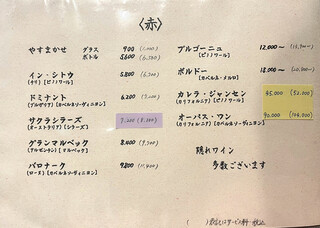 〈赤〉
やすまかせ グラス 900
ボトル 5,600
イン・シトウ 5,800
(チリ)[ピノノワール]
ドミナント 6,200
(ブルガリア)[カベルネソーヴィニヨン]
サクラシラーズ 7,200 (8,300)
(オーストラリア)[シラーズ]
グランマルベック 8,400
(アルゼンチン)[マルベック]
バロナーク 9,800
(ローヌ)[カベルネソーヴィニヨン]
ブルゴーニュ 12,000〜
[ピノノワール]
ボルドー 18,000〜
[カベルネ・メルロ]
カレラ・ジャンセン 45,000 (52,000)
(カリフォルニア)[ピノノワール]
オーパス・ワン 90,000 (104,000)
(カリフォルニア)[カベルネソーヴィニヨン]
隠れワイン
多数ございます